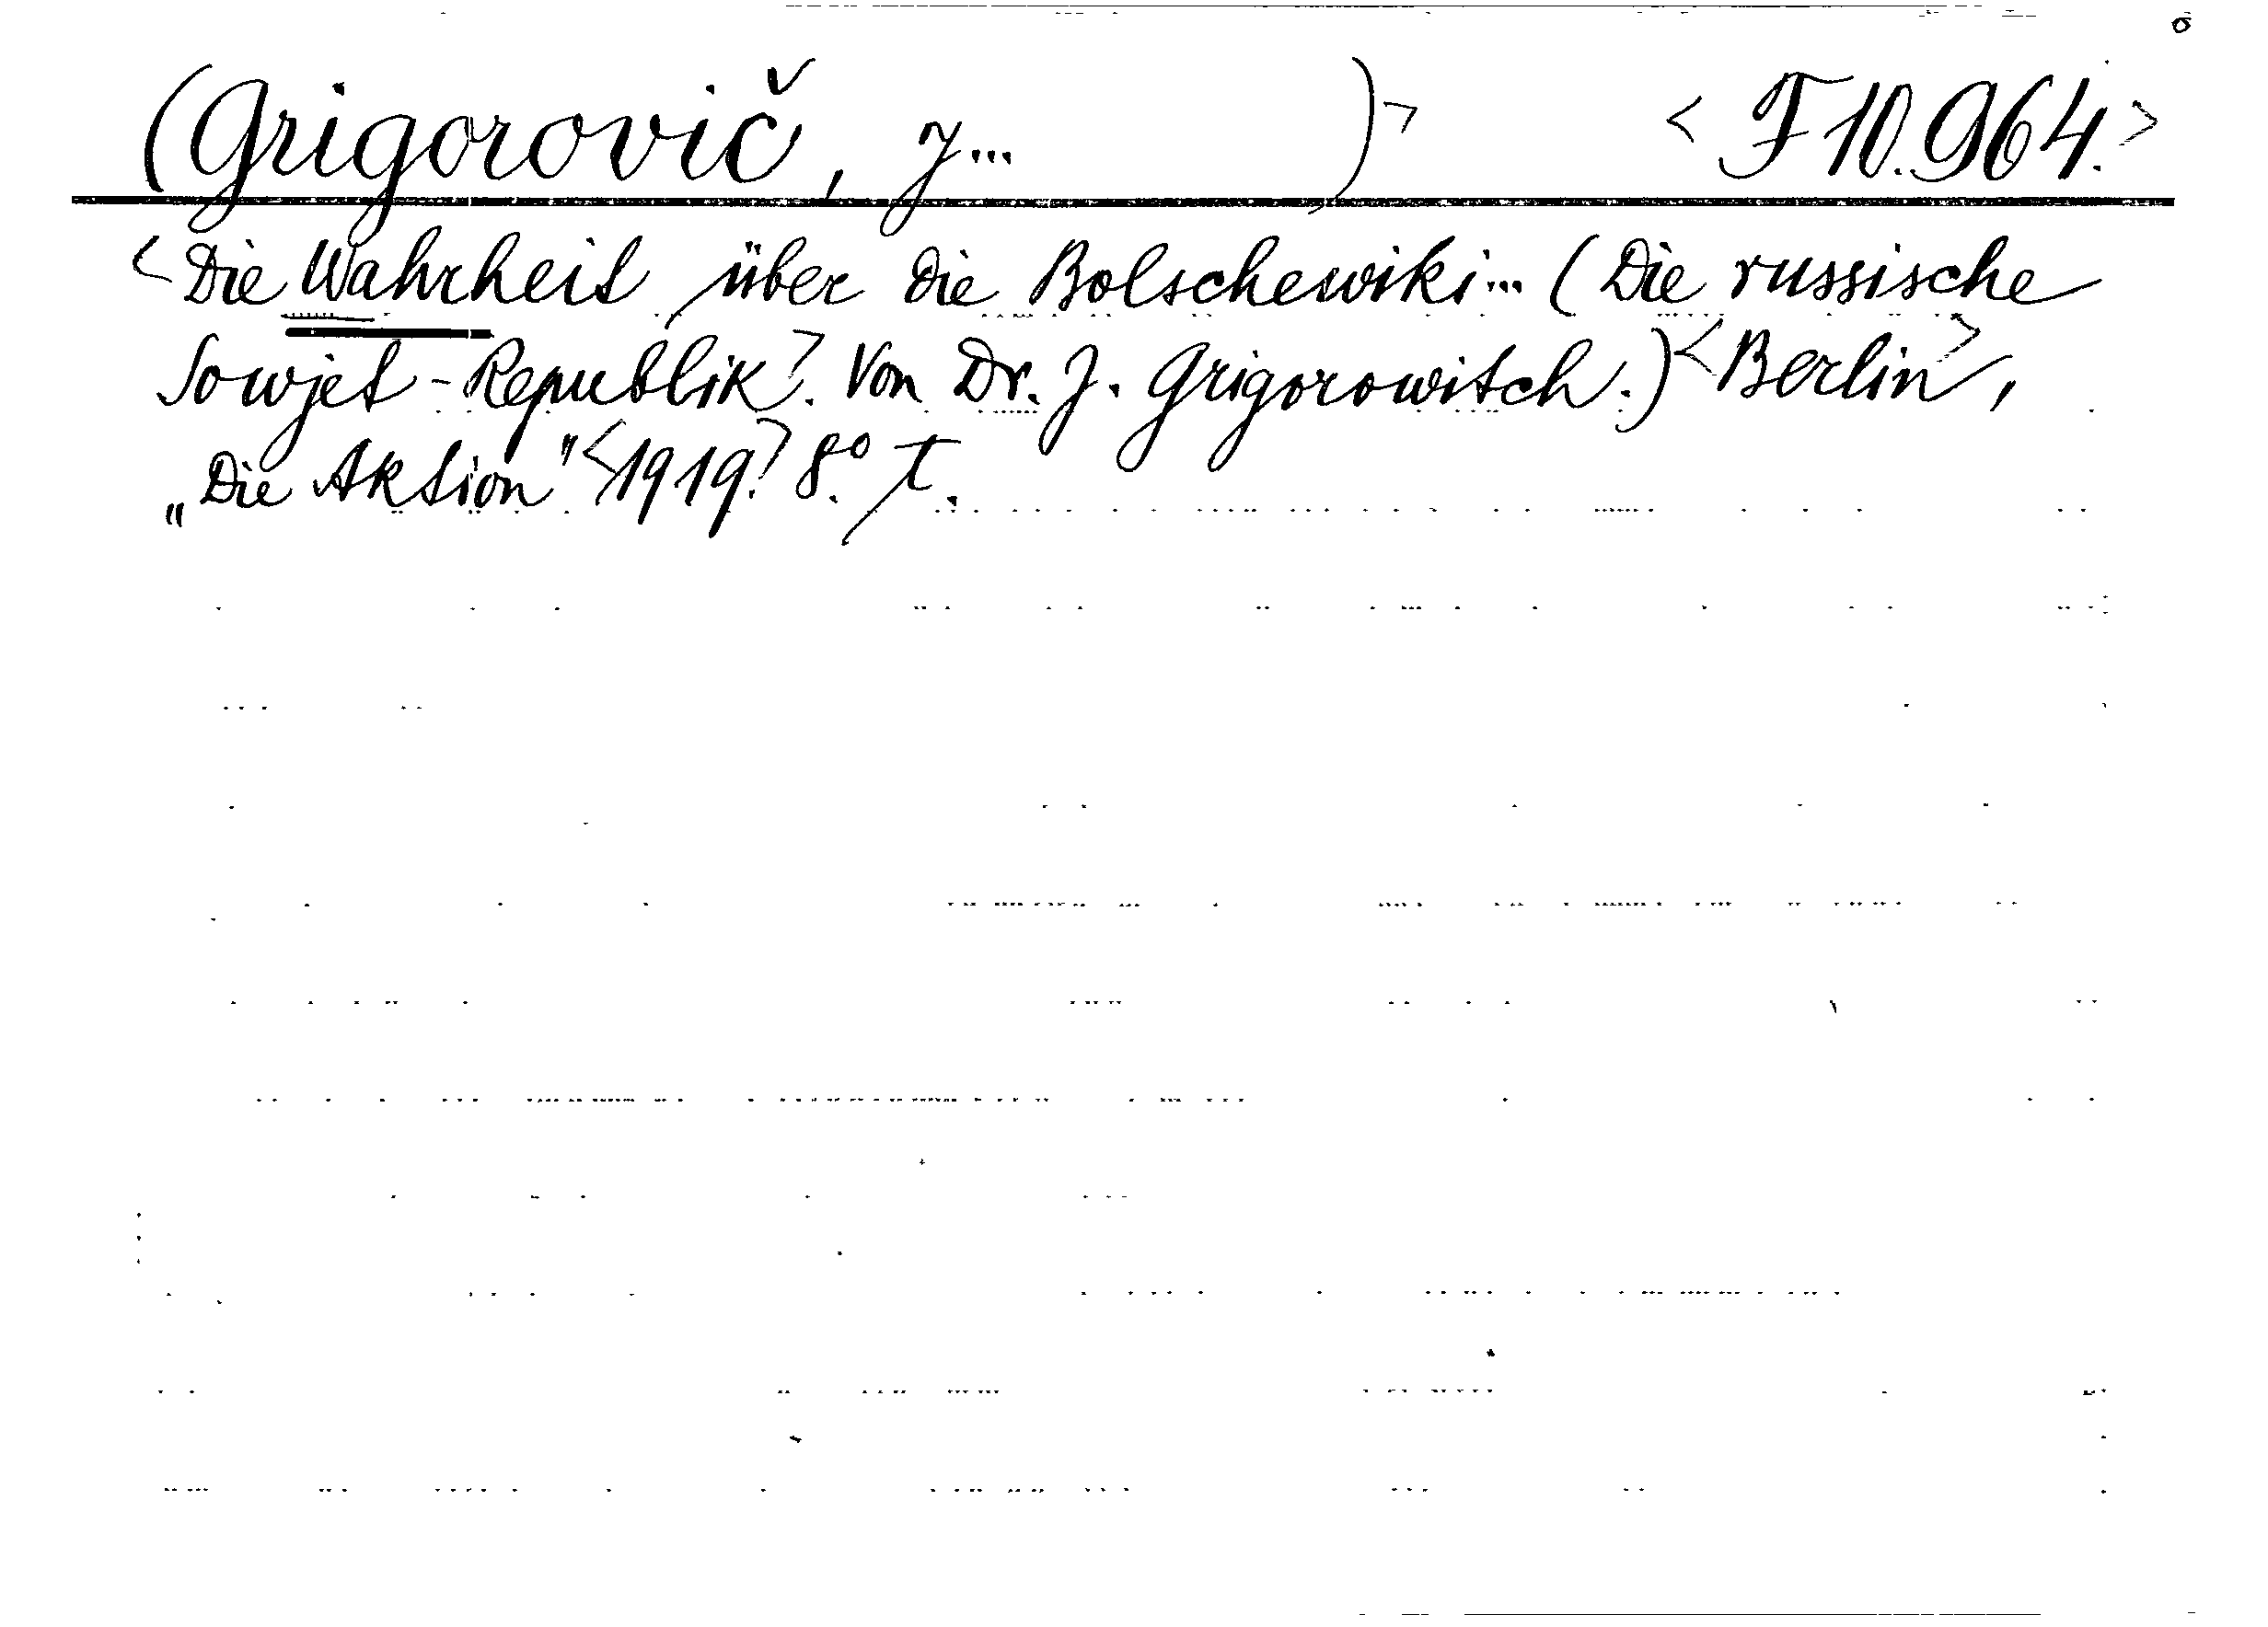 (Grigorovič, J... )> <F 10.964.>
<Die Wahrheit über die Bolschewiki... (Die russische
Sowjet-Republik>. Von Dr. J. Grigorowitsch.) <Berlin>,
„Die Aktion" <1919.> 8.° T.